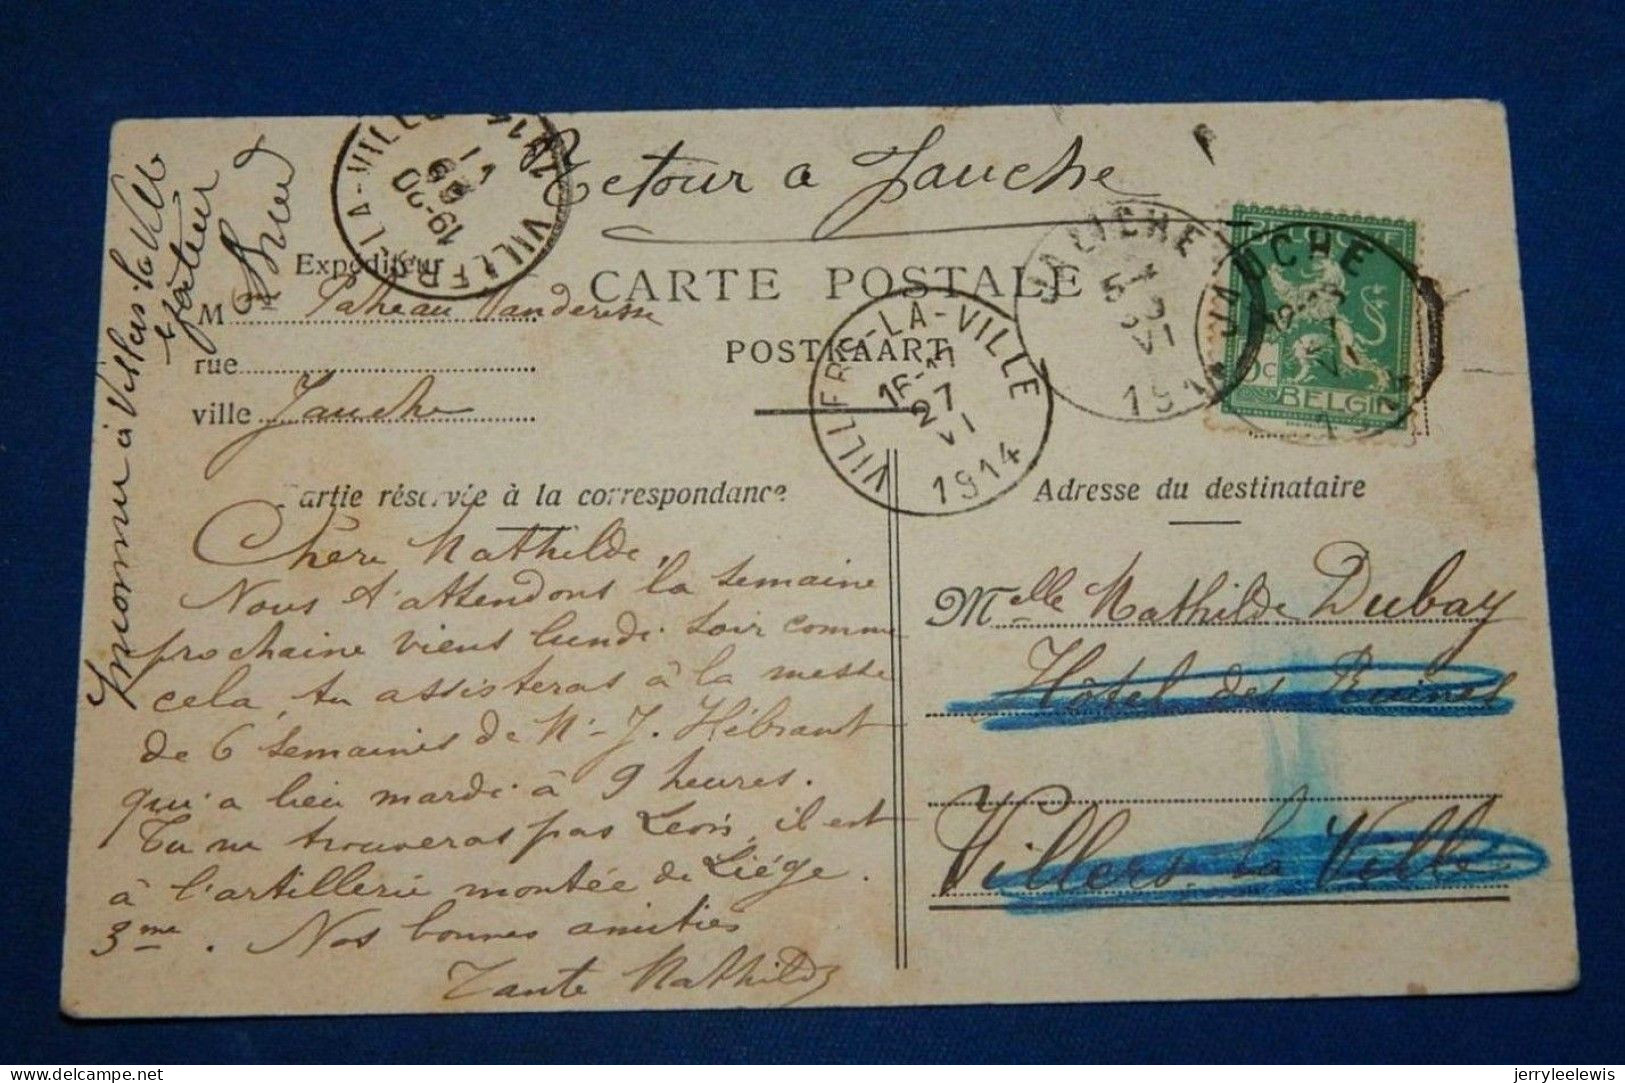 Retour a Jauche
Inconnu à Villers la Ville
facteur
VILLERS-LA-VILLE
19-20
VI
Expéditeur
CARTE POSTALE
POSTKAART
M
rue
ville Jauche
VILLERS-LA-VILLE
16-17
27
VI
1914
JAUCHE
JAUCHE
VI
BELGIQUE
5c
BELGIË
Partie réservée à la correspondance
Adresse du destinataire
Chère Mathilde,
Nous t'attendons la semaine
prochaine viens lundi soir comme
cela, tu assisteras à la messe
de 6 semaines de N. J. Hébrant
qui a lieu mardi à 9 heures.
Tu ne trouveras pas Leon, il est
à l'artillerie montée de Liége.
3me. Nos bonnes amitiés
Tante Mathilde
Melle Mathilde Dubay
Hôtel des Ruines
Villers la Ville
delcampe.net
jerryleelewis